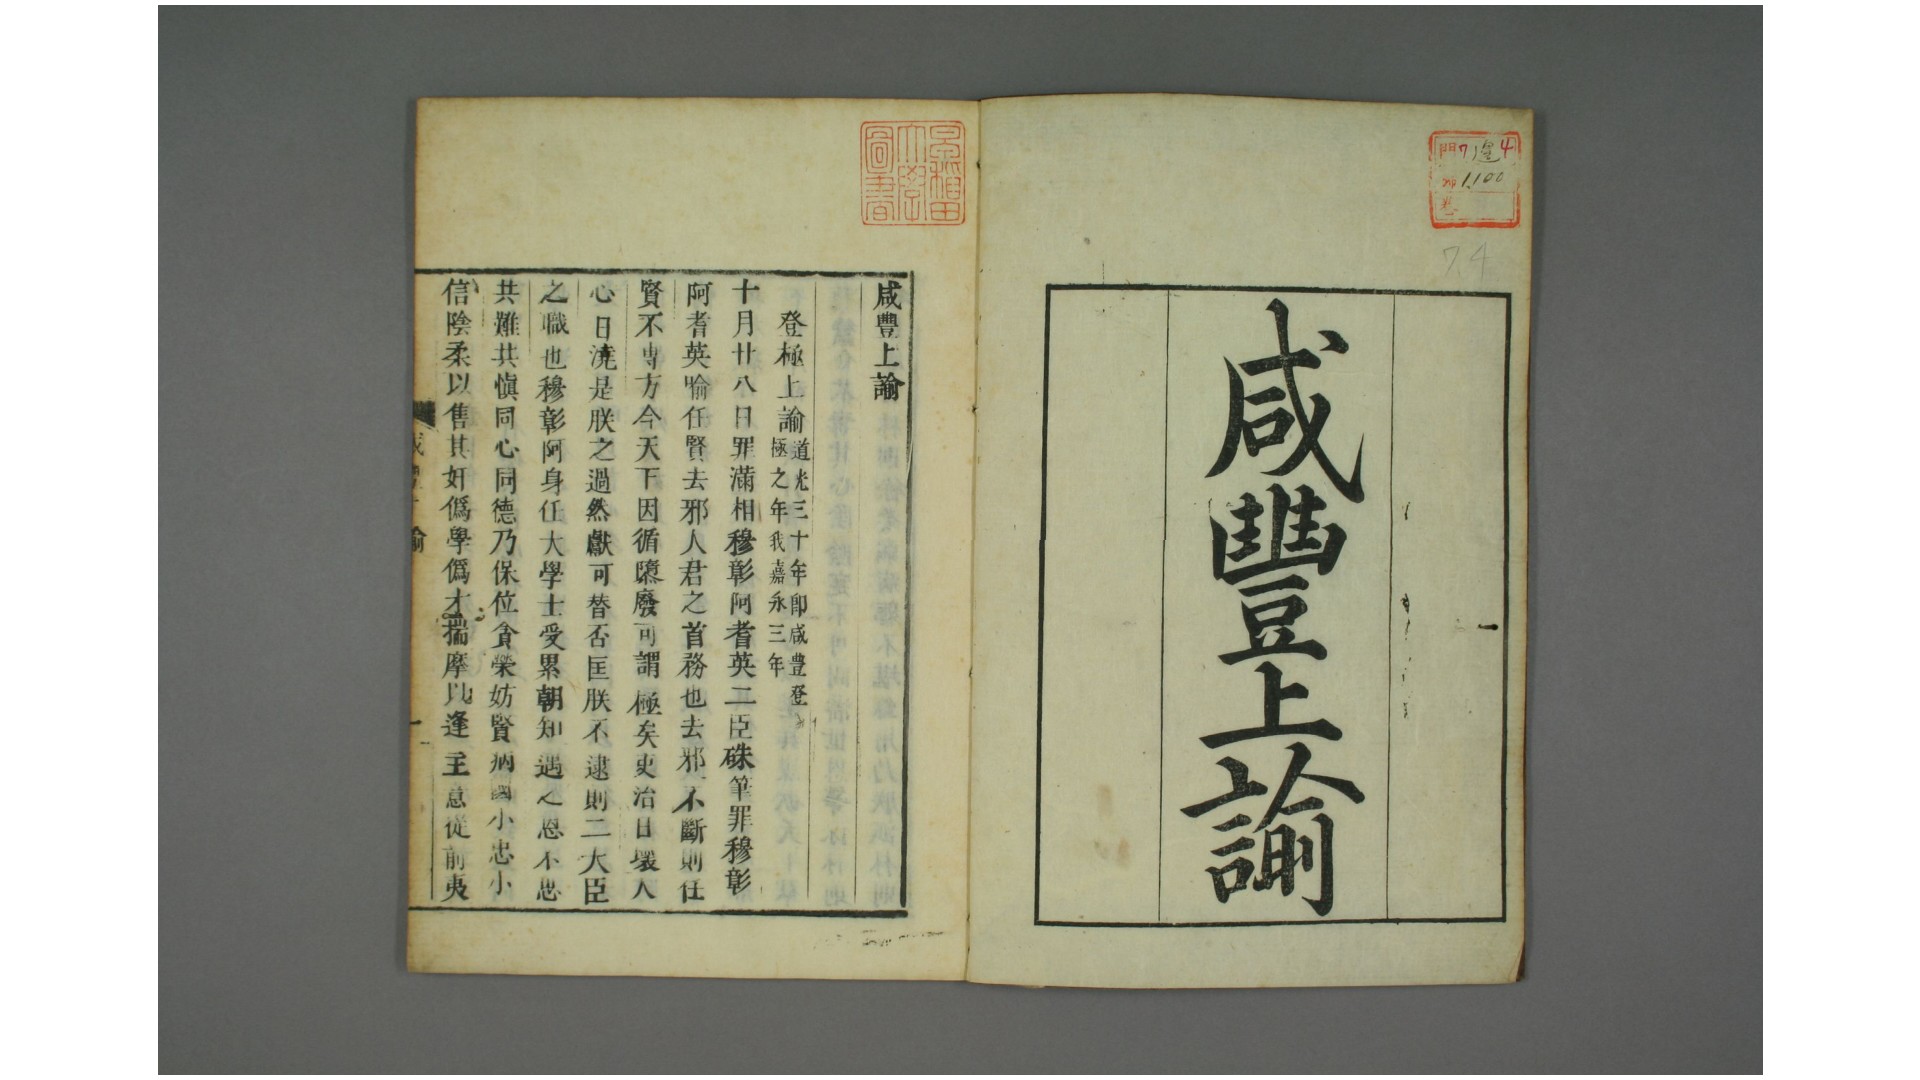 門 7 逞 4
部 1,100
卷
74
咸豐上諭
早稲田
大學
圖書
咸豐上諭
登極上諭道光三十年即咸豊登
極之年我嘉永三年
十月廿八日罪滿相穆彰阿耆英二臣硃筆罪穆彰
阿耆英喻任賢去邪人君之首務也去邪不斷則任
賢不専方今天下因循隳廢可謂極矣吏治日壞人
心日澆是朕之過然獻可替否匡朕不逮則二大臣
之職也穆彰阿身任大學士受累朝知遇之恩不思
共難共愼同心同德乃保位貪榮妨賢病國小忠小
信陰柔以售其奸僞學僞才揣摩以逢主意從前夷
咸豐上諭
一